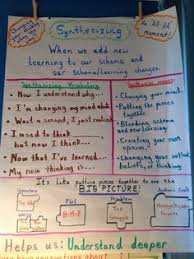 Synthesizing
An AH-HA
moment!
When we add new
learning to our schema and
our schema/learning changes.
Synthesizing Vocabulary
Now I understand why...
I'm changing my mind about
Wait a second, I just realized
I used to think
but now I think...
Now that I've learned...
My new thinking is...
Synthesizing means:
Changing your mind.
Putting the pieces
together
Blending schema
and new
learning
Changing your outlook,
beliefs, or thinking
It's like putting pieces together to see the
BIG PICTURE!
Plot
B-M-E
Problem
Author's Craft
Helps us: Understand deeper